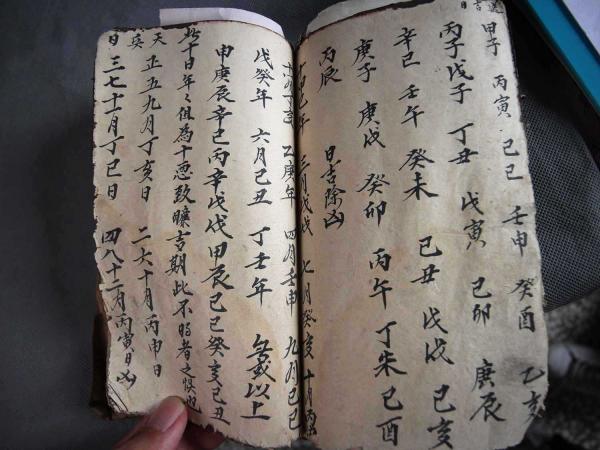 甲子 丙寅 己巳 壬申 癸酉 乙亥
丙子 戊子 丁丑 戊寅 己卯 庚辰
辛巳 壬午 癸未 己丑 戊戌 己亥
庚子 庚戌 癸卯 丙午 丁未 己酉
丙辰 日吉除凶
己年 三月戊戌 七月癸亥 十月丙
乙庚年 四月壬申 九月乙巳
戊癸年 六月己丑 丁壬年 無 以上
申庚辰辛巳丙辛戊戌甲辰乙巳癸亥己丑
此十日年々但為十惡致曠吉期此不明者之悮也
天 正五九月丁亥日 二六十月丙申日
日 三七十一月丁巳日 四八十二月丙寅日凶